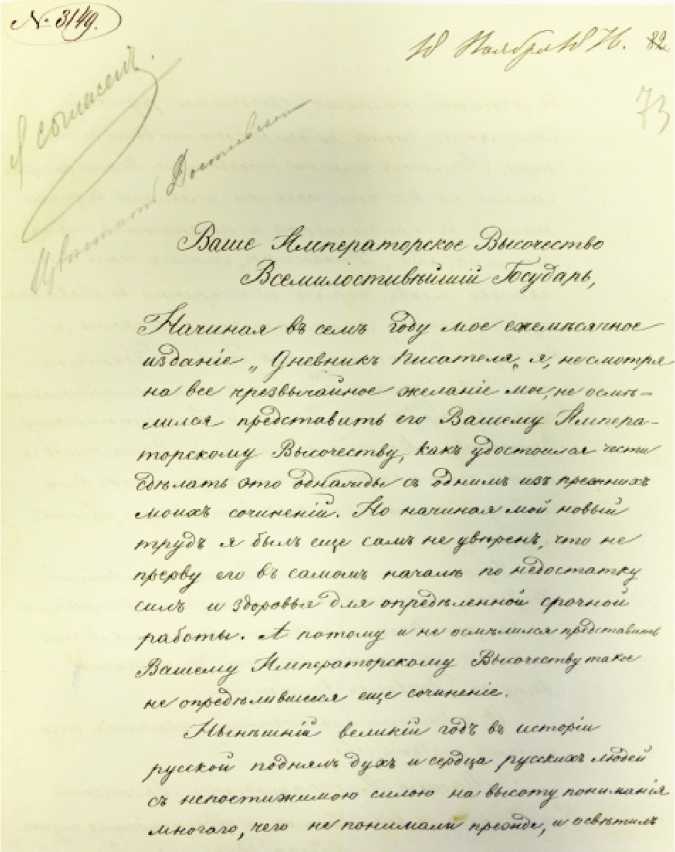 № 3149.
18 Ноября 1876. 82
73
Я согласен.
Достоевский
Ваше Императорское Высочество
Всемилостивѣйшій Государь,
Начиная въ семъ году мое ежемѣсячное
изданіе „Дневникъ Писателя„ я, несмотря
на все чрезвычайное желаніе мое, не осмѣ-
лился представить его Вашему Импера-
торскому Высочеству, какъ удостоился чести
сдѣлать это однажды съ однимъ изъ прежнихъ
моихъ сочиненій. Но начиная мой новый
трудъ я былъ еще самъ не увѣренъ, что не
прерву его въ самомъ началѣ по недостатку
силъ и здоровья для опредѣленной срочной
работы. А потому и не осмѣлился представить
Вашему Императорскому Высочеству такое
не опредѣлившееся еще сочиненіе.
Нынѣшній великій годъ въ исторіи
русской поднялъ духъ и сердца русскихъ людей
съ непостижимою силою на высоту пониманія
многаго, чего не понимали прежде, и освѣтилъ